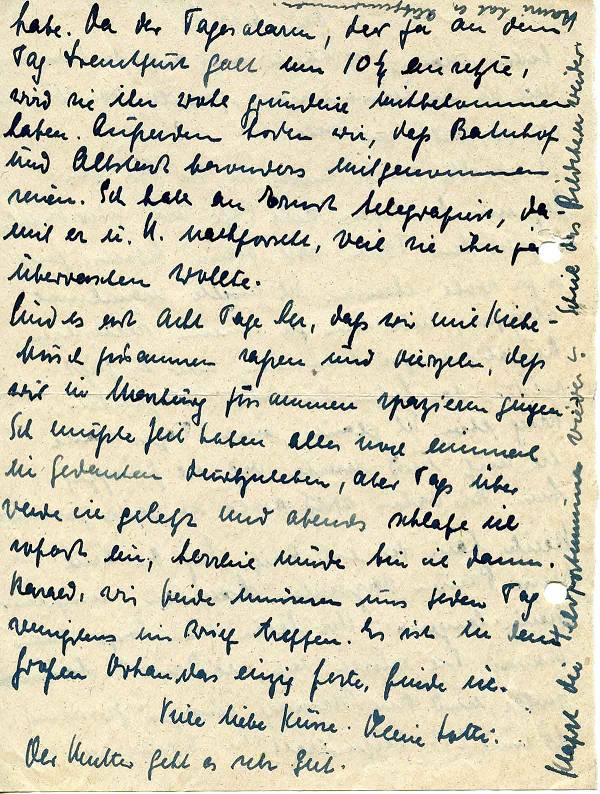 habe. Da der Tagesalarm, der ja an dem
Tag Frankfurt galt um 10 einsetzte,
wird sie ihn wohl gründlich mitbekommen
haben. Außerdem hören wir, daß Bahnhof
und Altstadt besonders mitgenommen
seien. Ich habe an Ernst telegrafiert, da-
mit er u. U. nachforscht, weil sie ihn ja
überraschen wollte.
Sind es erst acht Tage her, daß wir mit
zusammen saßen und vierzehn, daß
wir in Marburg zusammen spazieren gingen.
Ich müßte Zeit haben alles noch einmal
in Gedanken durchzuleben, aber Tags über
werde ich gehetzt und abends schlafe ich
sofort ein, so müde bin ich dann.
wir beide müssen uns jeden Tag
wenigstens im Brief treffen. Es ist in dem
großen Orkan, das einzig feste, finde ich.
Viele liebe Küsse. Deine Lotti.
Der Mutter geht es sehr gut.
Klappt die Feldpostnummer wieder?